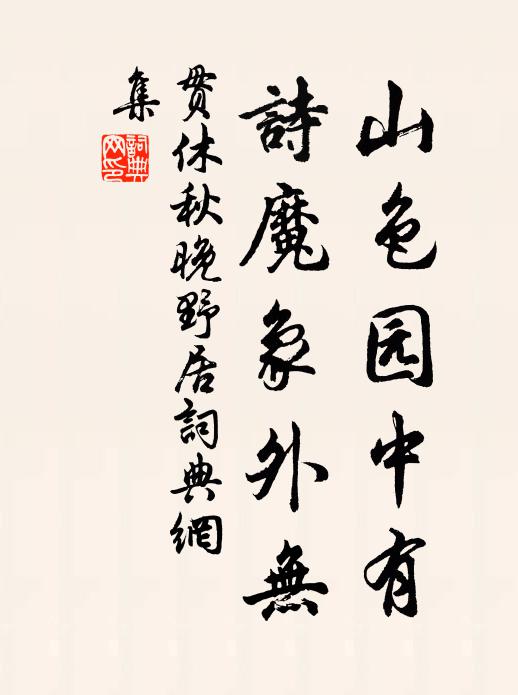 山色园中有
詩魔象外無
貫休秋晚野居詞典網
集
詞典
网印